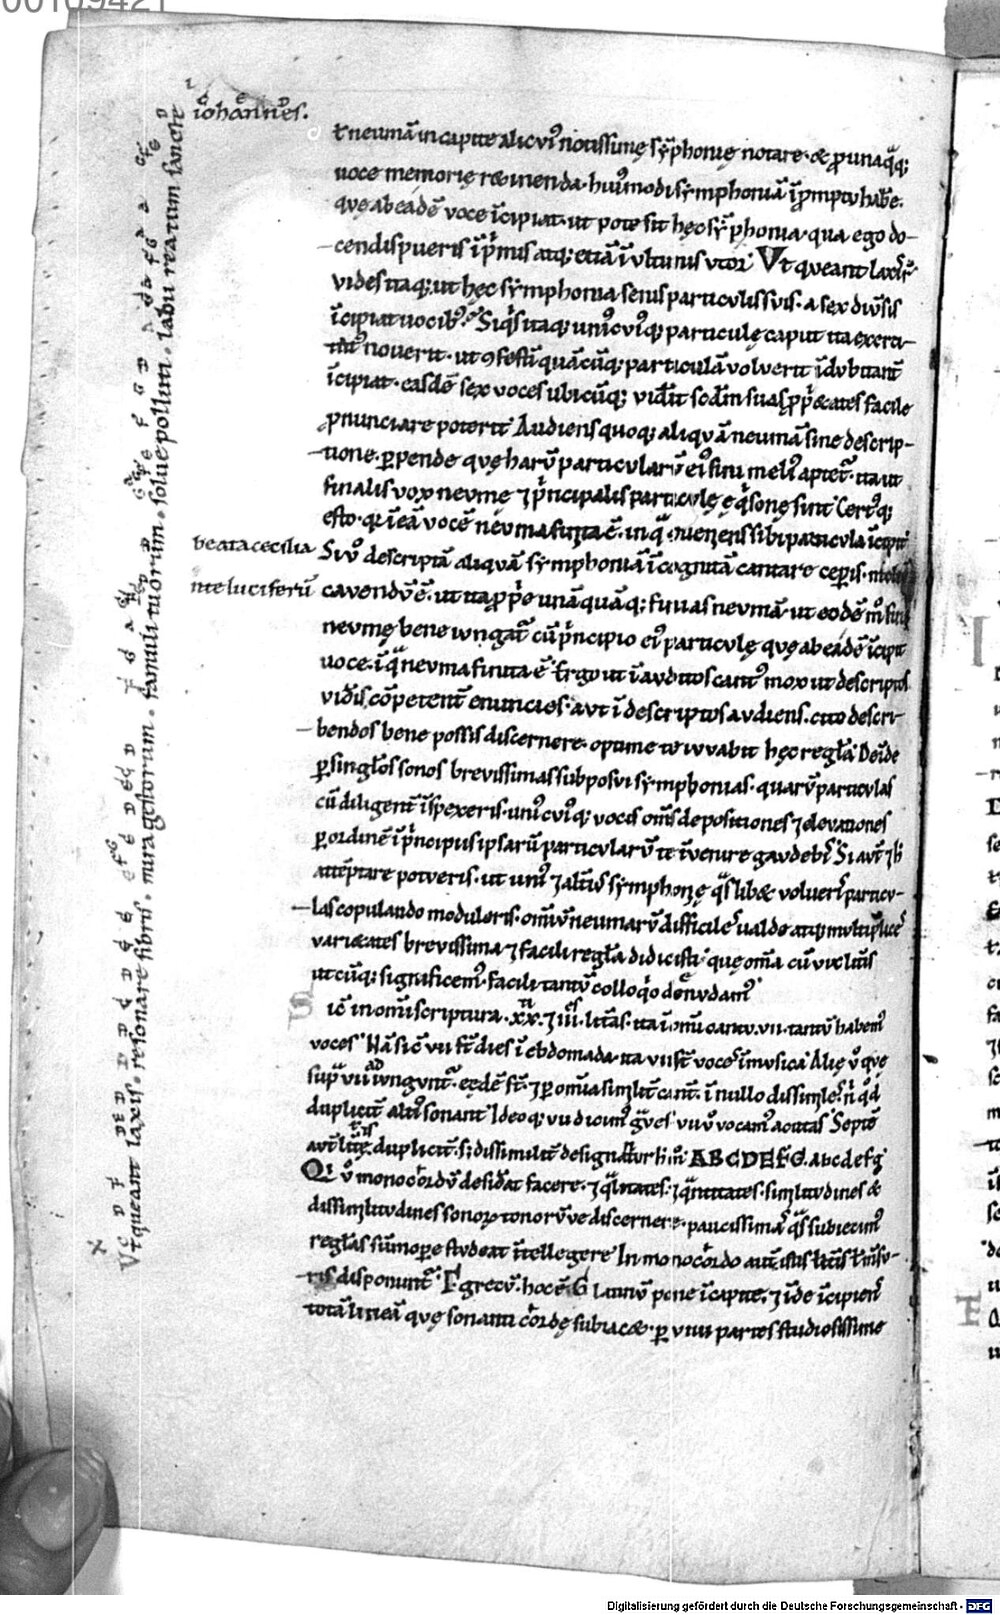 00109421
iohannes.
ł neumā in capite alicui᷒ notissimę sȳphonię notare. & ꝓ unaq̄q;
uoce memorię retinenda. hui᷒modi symphoniā ī promptu habe.
quę ab eadē uoce īcipiat. ut pote sit hęc sȳphonia. qua ego do-
cendis pueris ī pͥmis atq; etiā ī ultimis utor. Vt queant laxis
uides itaq; ut hęc symphonia senis particulis suis. a sex diūsis
īcipiat uocib᷒. Siq͛s itaq; uni᷒cui᷒q; particulę caput ita exerci-
tat᷒ nouerit. ut ꝯfestī quācūq; particulā uoluerit īdubitant̄
īcipiat. easdē sex uoces ubicūq; uiderit scdm suas ꝓp͛etates facile
ꝓnunciare poterit. Audiens quoq; aliquā neumā sine descrip-
tione. ꝑpende quę harū particularū ei᷒ fini meli᷒ aptet᷑. ita ut
finalis uox neumę ⁊ pͥncipalis particulę eq͛sonę sint. Cert᷒q;
esto. qͥ ī eā uocē neuma finita ē. in q̄ ꝯueniens sibi particula īcipit.
beata cecilia
Siu͛o descriptā aliquā symphoniā īcognitā cantare cep͛is.
nte luciferū
cauendū ē. ut ita ꝓp͛e unāquāq; finias neumā. ut eodē m̊ finis
neumę bene iungat᷑ cū pͥncipio ei᷒ particulę quę ab eadē īcipit
uoce. ī q̄ neuma finita ē. Ergo ut īauditos cant᷒ mox ut descriptos
uid͛is cōpetent͛ enuncies. aut ī descriptos audiens. cito descri-
bendos bene possis discernere. optime te iuuabit hęc regl̄a. Deīde
ꝑ singl̄os sonos breuissimas subposui symphonias. quarū particulas
cū diligent͛ īspexeris. uni᷒cui᷒q; uocis om̄s depositiones ⁊ eleuationes
ꝑ ordinē ī pͥncipiis ipsarū particularū te īuenire gaudeb͛. Si aut̄ ⁊ h̄
attēptare potueris. ut uni᷒ ⁊ alt͛i᷒ symphonię q̄s libet uoluer͛ particu-
las copulando moduleris. om̄iū neumarū difficile᷒ ualde atq; multiplice᷒
uarietates breuissima ⁊ facili regl̄a didicisti. quę om̄a cū uix litt͛is
utcūq; significem᷒. facili tantū colloq͛o denudam᷒.
Sic̄ in om̄i scriptura .xx. ⁊ iiii. litt͛as. ita ī om̄i cantu .vii. tantū habem᷒
uoces. Nā sic̄ vii s̄t dies ī ebdomada. ita vii s̄t uoces ī musica. Alię u͛o quę
sup͛ vii iungunt᷑. eędē s̄t. ⁊ ꝑ om̄ia simil͛it cant̄. ī nullo dissimiles nͥ qd̄
duplicit͛ alti᷒ sonant. Ideoq; vii dicim᷒ g͛ues. vii u͛o uocam᷒ acutas. Septē
aut̄ litt͛ę duplicit͛. s; dissimilit͛ designant᷑ h̄ m̊. ABCDEFG. abcdefg.
Qͥ u͛o monocordū desid͛at facere. ⁊ q͛litates. ⁊ q̄ntitates. similitudines &
dissimilitudines sonoꝝ tonorūve discernere. paucissimas q̄s subiecim᷒
regl̄as sūmope studeat ītellegere. In monocordo aut̄ istis litt͛is
disponunt᷑. Γ grecū. hoc ē G latinū pone īcapite. ⁊ īde īcipiens
totā lineā quę sonanti cordę subiacet. ꝑ viiii partes studiosissime
Vt queant laxis. resonare fibris. mira gestorum. famuli tuorum. solue polluti. labii reatum sancte
Digitalisierung gefördert durch die Deutsche Forschungsgemeinschaft - DFG